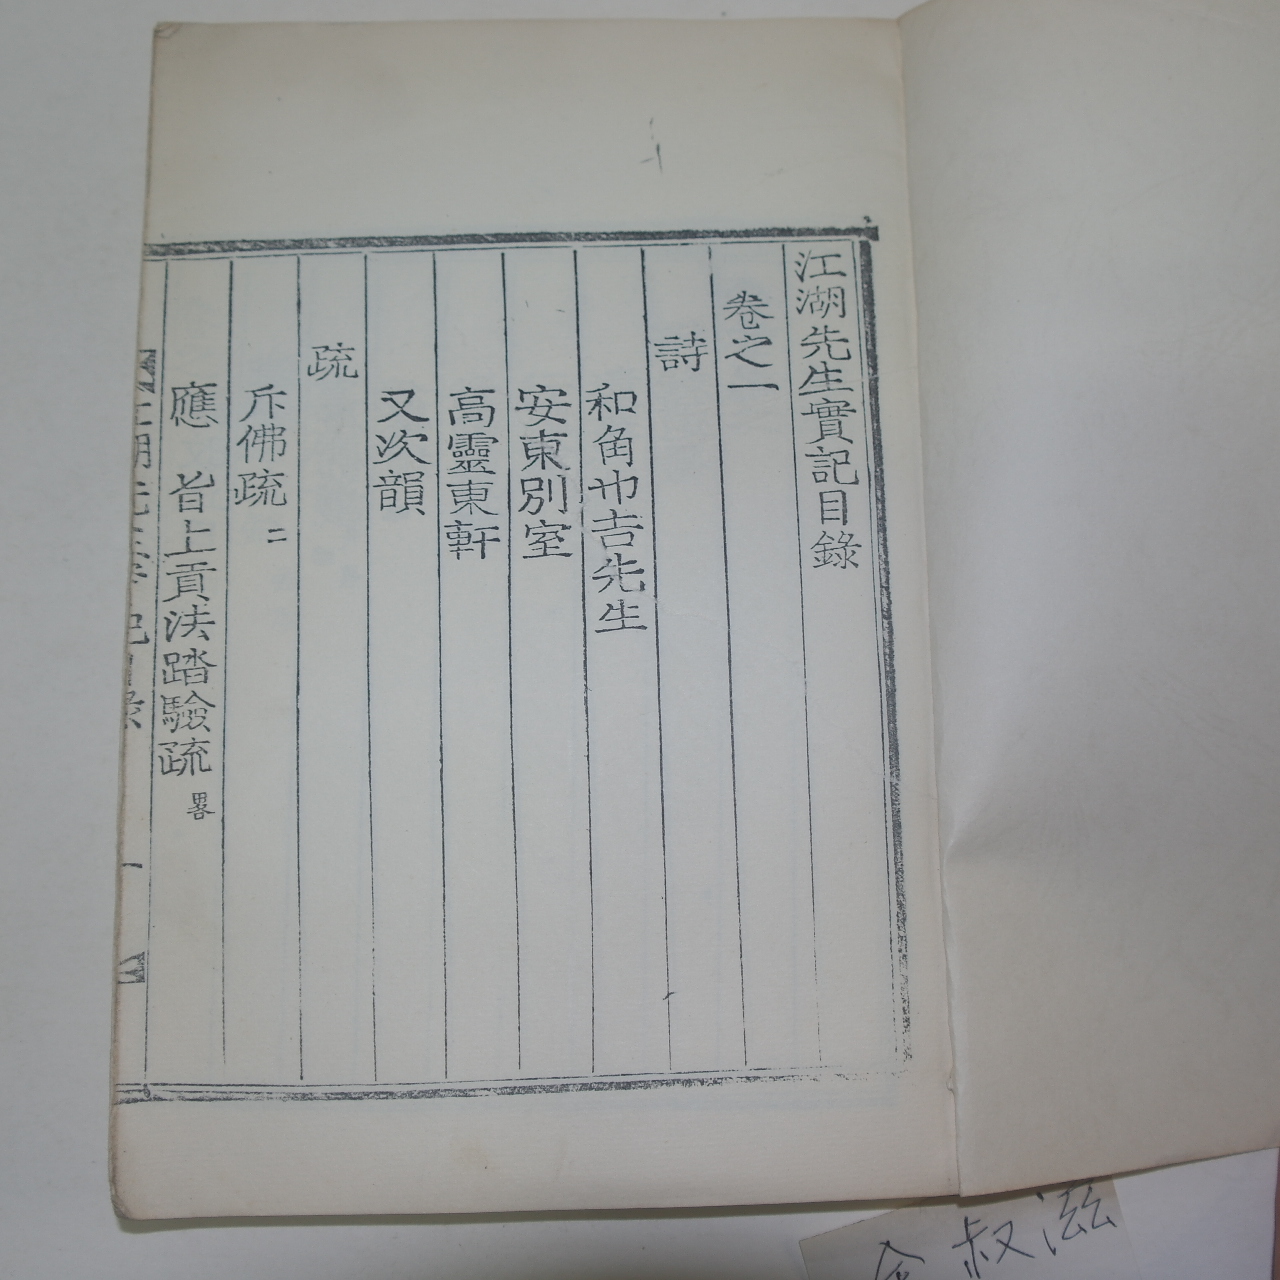 江湖先生實記目錄
卷之一
詩
和角也吉先生
安東別室
高靈東軒
又次韻
疏
斥佛疏 二
應 旨上貢法踏驗疏 畧
一
金叔滋